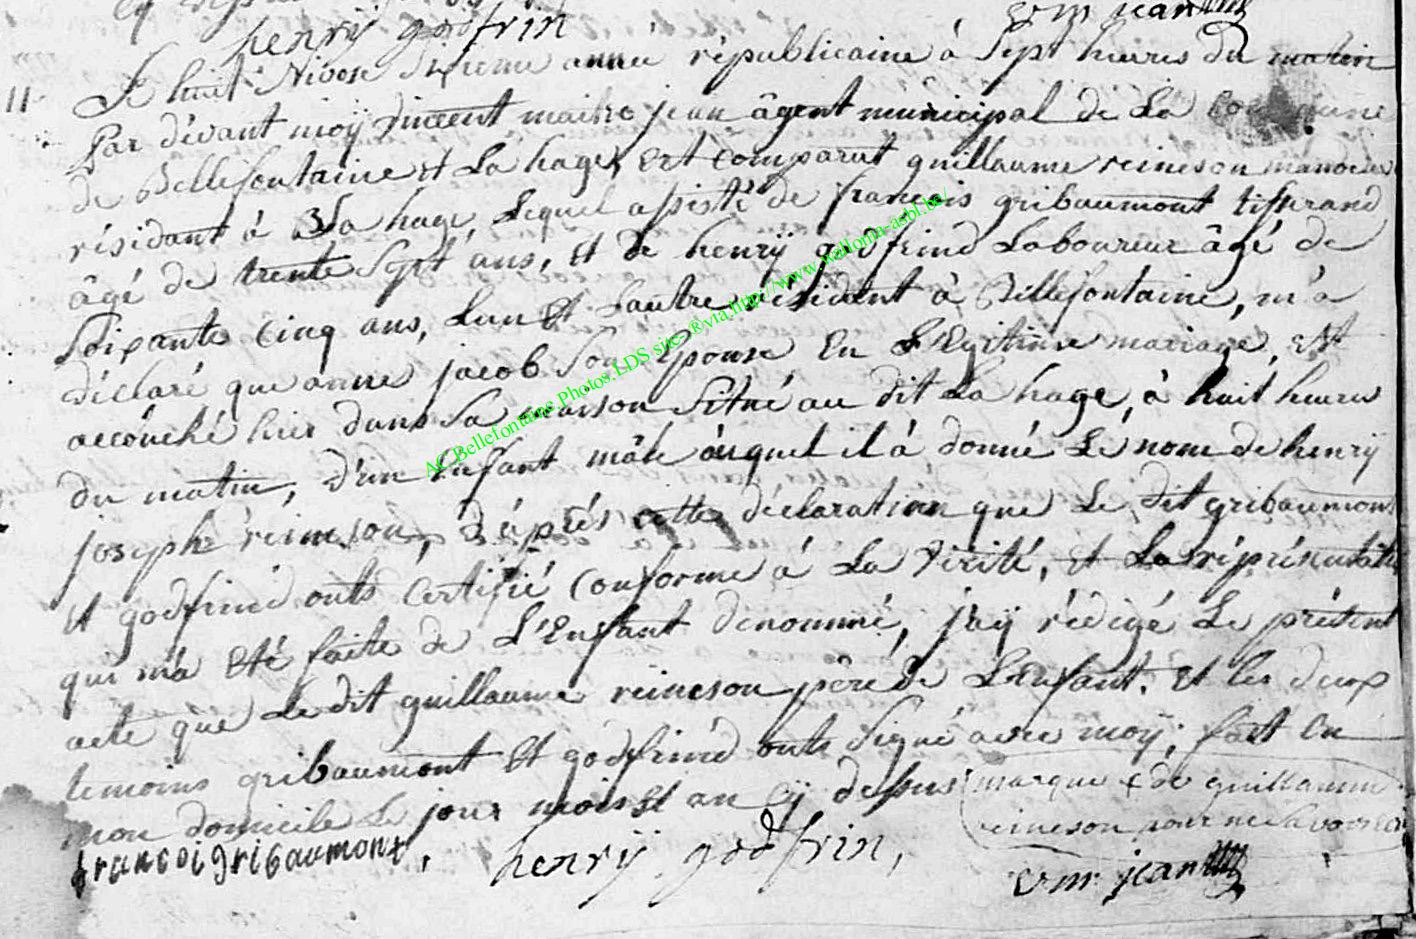 henrÿ godfrin
v m jean
11
Le huit Nivose Sixieme anneé républicaine à Sept heures du matin
Par dévant moÿ vincent maitre jean âgent municipal de La Commune
de Bellefontaine et La hage, est comparut guillaume reineson manoeuvre
résidant à La hage, Lequel assisté de françois gribaumont tisserand
âgé de trente Sept ans, et de henrÿ godfrind Laboureur âgé de
Soixante cinq ans, Lun Et Lautre résident à Bellefontaine, m'a
déclaré que anne jacob Son Epouse En Légitime mariage, Est
accouché hier dans Sa maison Situé au dit La hage, à huit heures
du matin, d'un Enfant mâle auquel il à donné Le nom de henrÿ
joseph reineson, d'après cette déclaration que Le dit gribaumont
et godfrind onts Certifié Conforme à La Vérité, et La réprésentation
qui m'a Eté faite de L'Enfant dénommé, j'aÿ rédigé Le présent
acte que Le dit guillaume reineson père de L'Enfant. Et les deux
temoins gribaumont Et godfrind onts Signé avec moÿ, fait En
mon domicile Le jour mois Et an cÿ dessus marque + de guillaume
reineson pour ne Savoir
francoi gribaumont, henrÿ godfrin,
v m jean
AC Bellefontaine Photos LDS sites ® via http://www.wallonia-asbl.be/